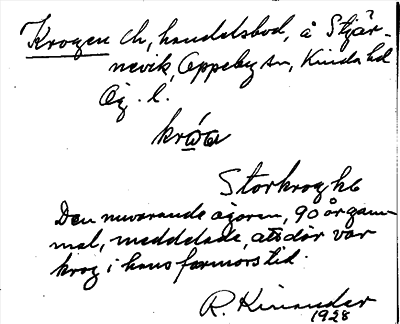 Krogen ch, handelsbod, å Stjär-
nevik, Oppeby sn, Kinda hd
Ög. l.
króa
Storkrog hb
Den nuvarande ägaren, 90 år gam-
mal, meddelade, att där var
krog i hans farmors tid.
R. Kinander
1928